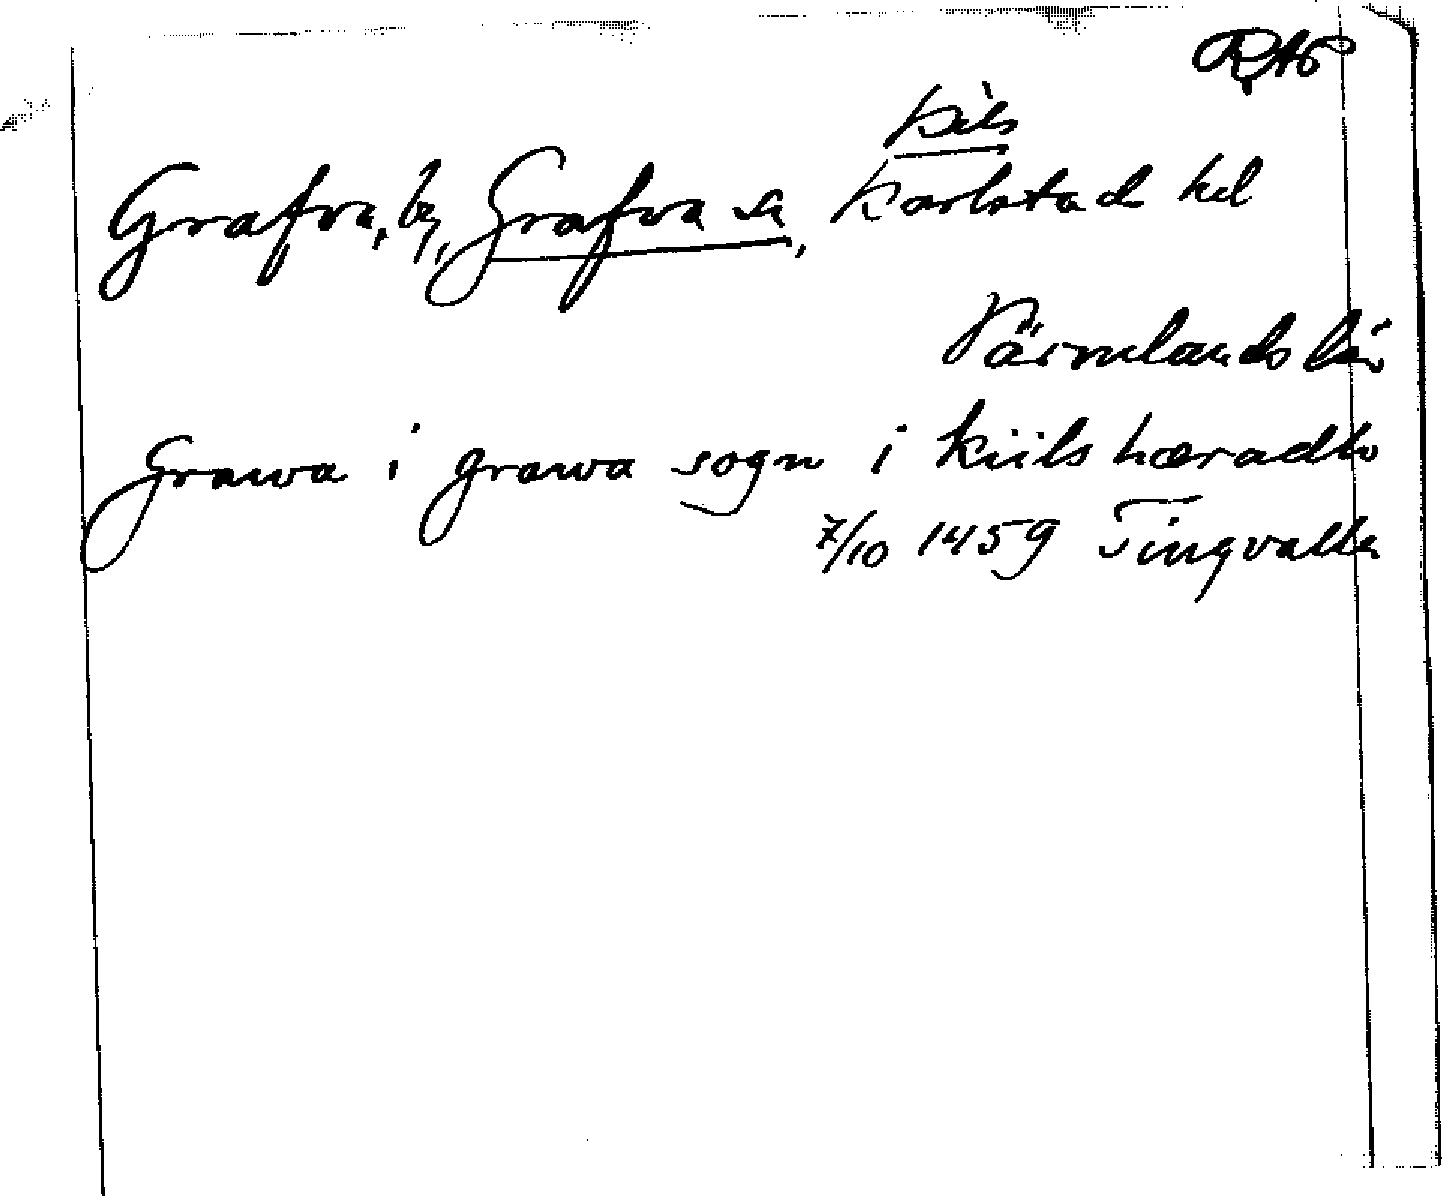 RAP
Kils
Grafva, by, Grafva sn, Karlstad hd
Värmlands län
Grawa i grawa sogn i kiils hæradh
7/10 1459 Tingvalla